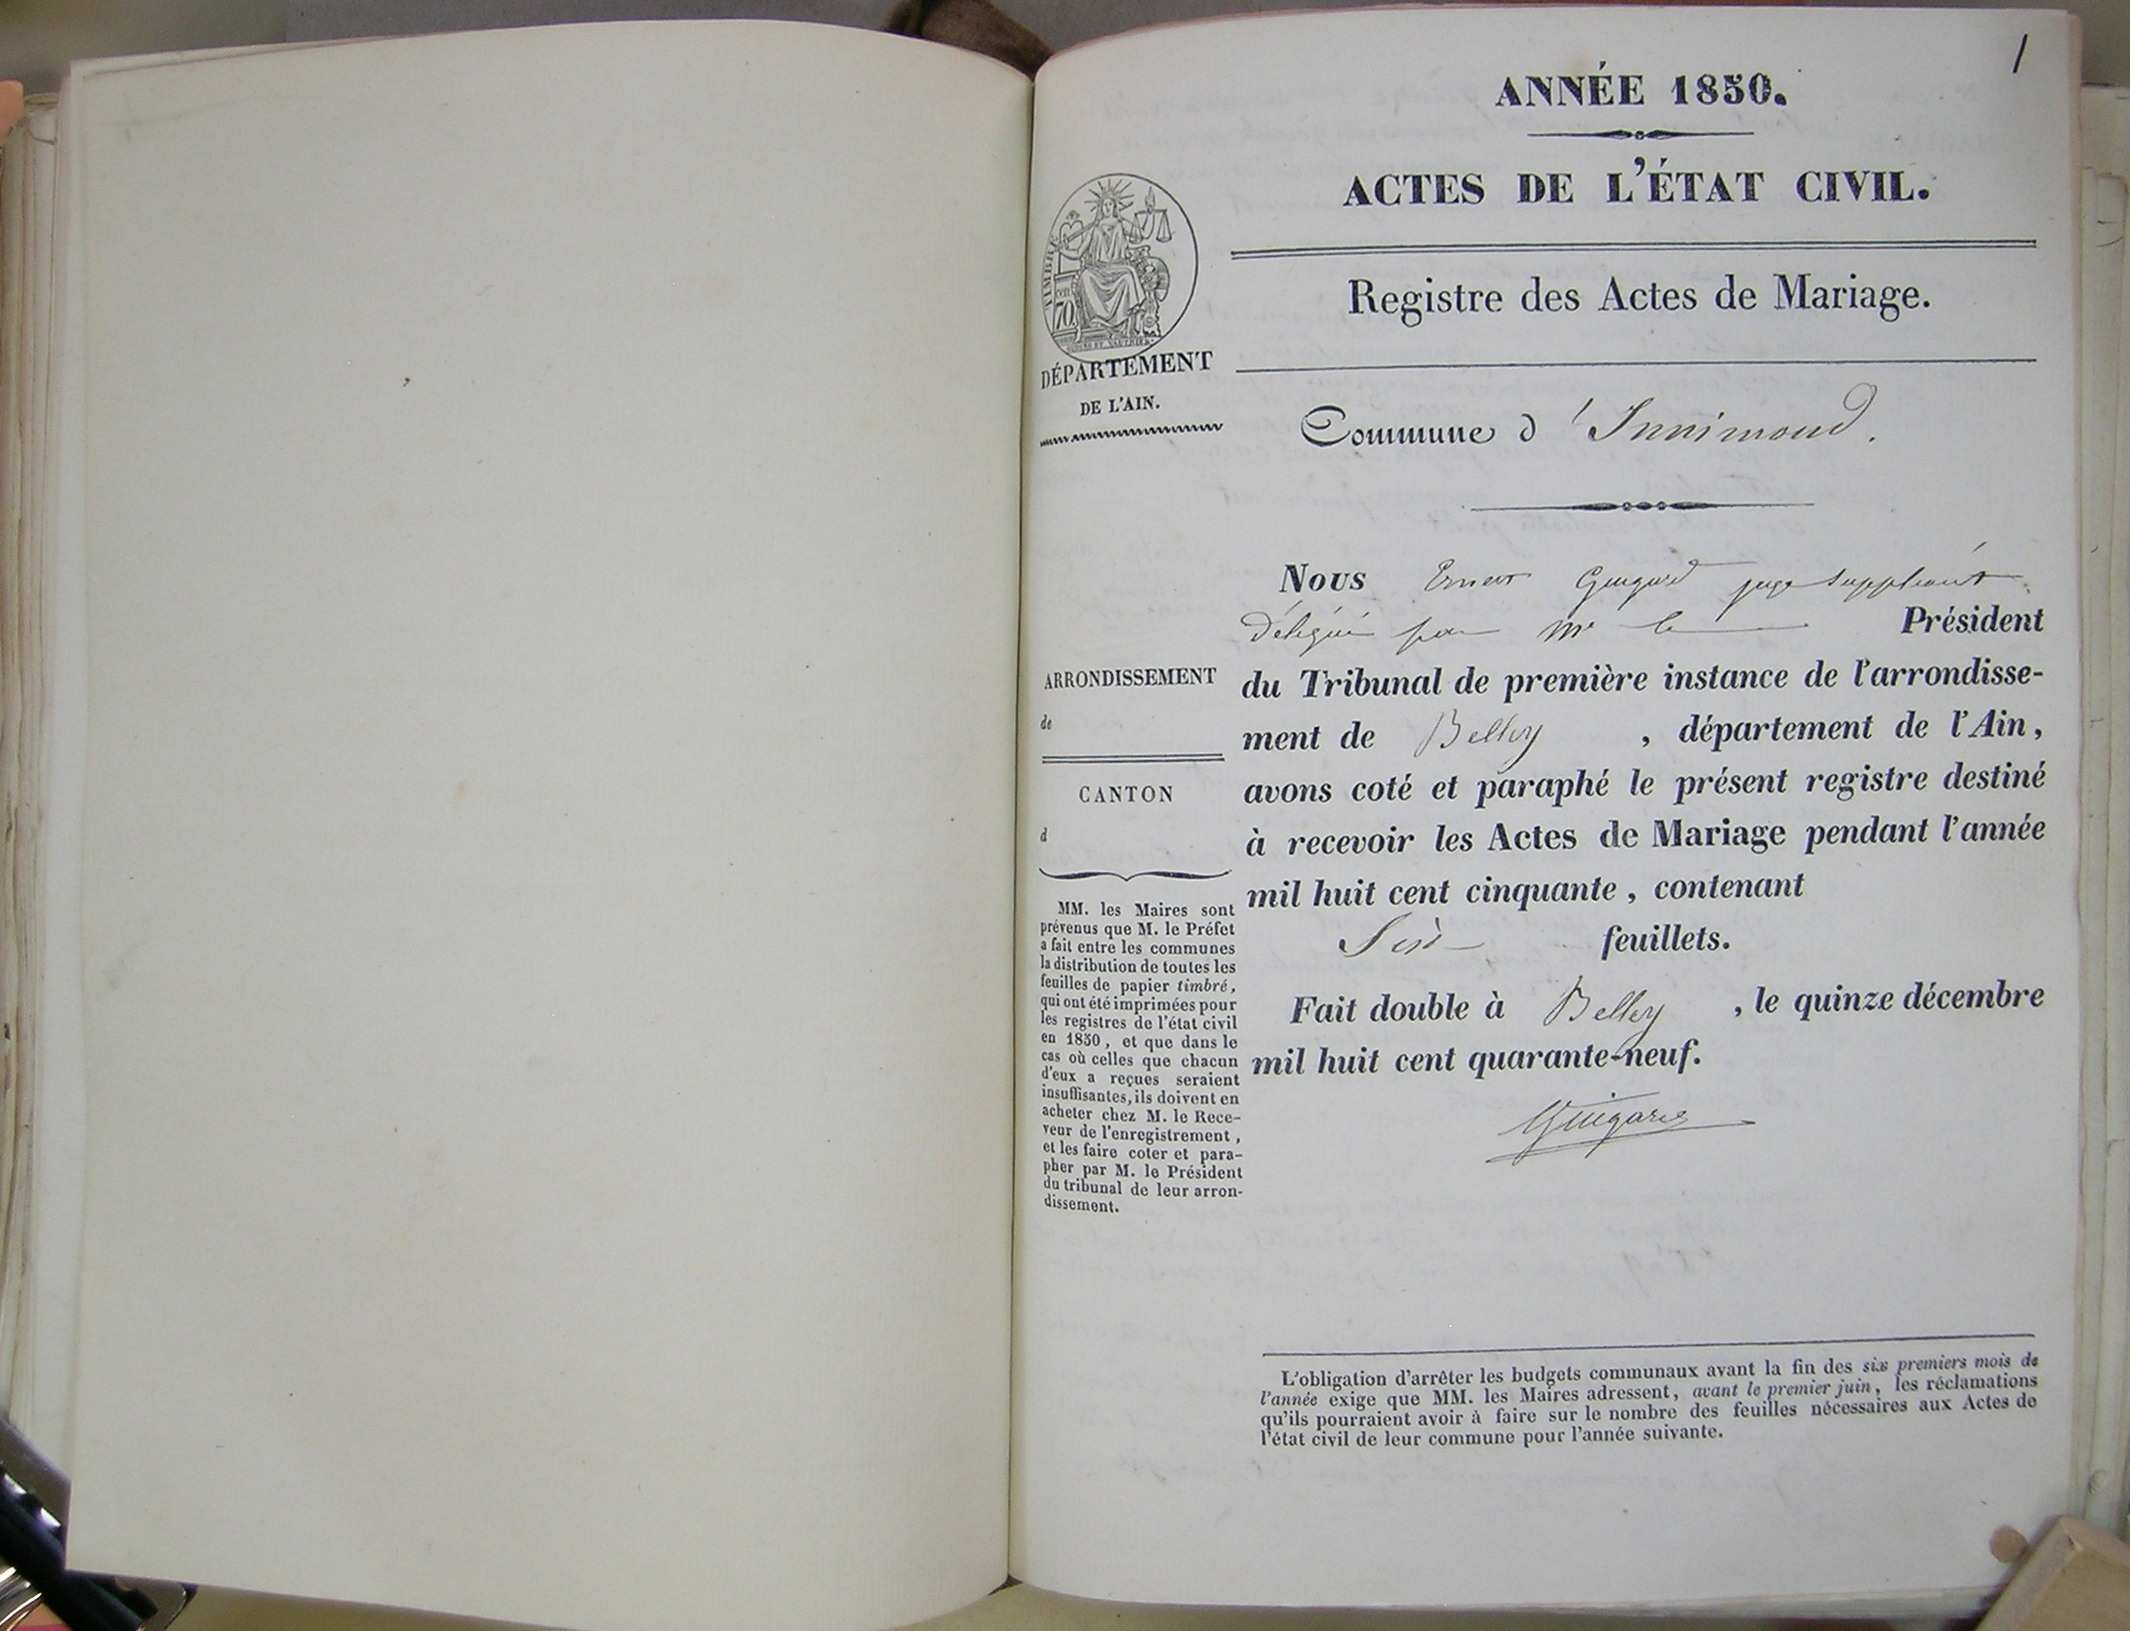 1
ANNÉE 1850.
ACTES DE L'ÉTAT CIVIL.
Registre des Actes de Mariage.
TIMBRE
70
DÉPARTEMENT
DE L'AIN.
Commune d'Innimond.
Nous Ernest Guigard juge suppléant
Délégué par Mr le Président
du Tribunal de première instance de l'arrondisse-
ment de Belley, département de l'Ain,
avons coté et paraphé le présent registre destiné
à recevoir les Actes de Mariage pendant l'année
mil huit cent cinquante, contenant
Six feuillets.
Fait double à Belley, le quinze décembre
mil huit cent quarante-neuf.
Guigard
ARRONDISSEMENT
de
CANTON
d
MM. les Maires sont
prévenus que M. le Préfet
a fait entre les communes
la distribution de toutes les
feuilles de papier timbré,
qui ont été imprimées pour
les registres de l'état civil
en 1850, et que dans le
cas où celles que chacun
d'eux a reçues seraient
insuffisantes, ils doivent en
acheter chez M. le Rece-
veur de l'enregistrement,
et les faire coter et para-
pher par M. le Président
du tribunal de leur arron-
dissement.
L'obligation d'arrêter les budgets communaux avant la fin des six premiers mois de
l'année exige que MM. les Maires adressent, avant le premier juin, les réclamations
qu'ils pourraient avoir à faire sur le nombre des feuilles nécessaires aux Actes de
l'état civil de leur commune pour l'année suivante.